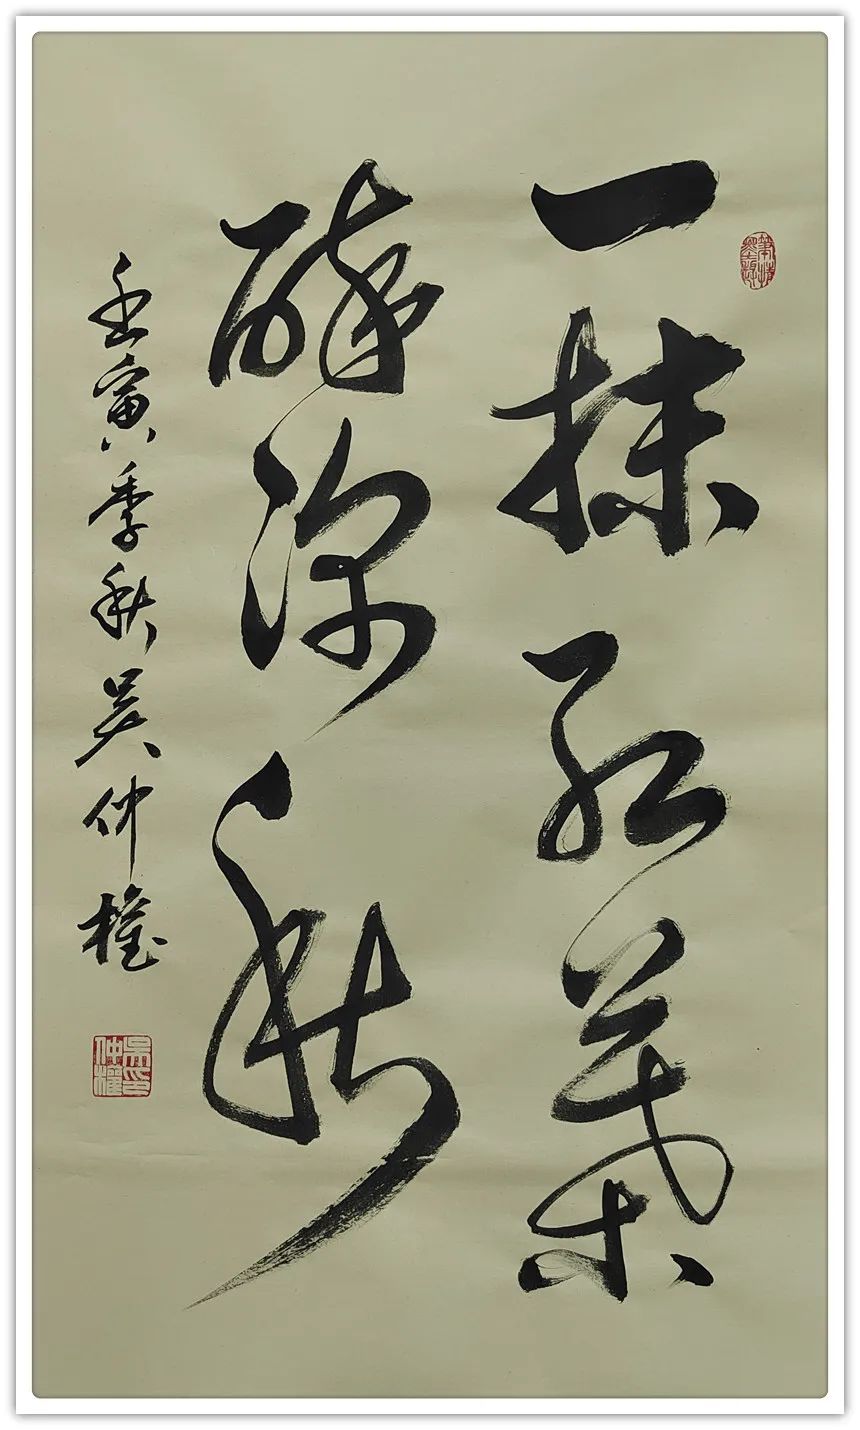 一抹红叶
醉深秋
壬寅季秋吴仲權
吴仲權印